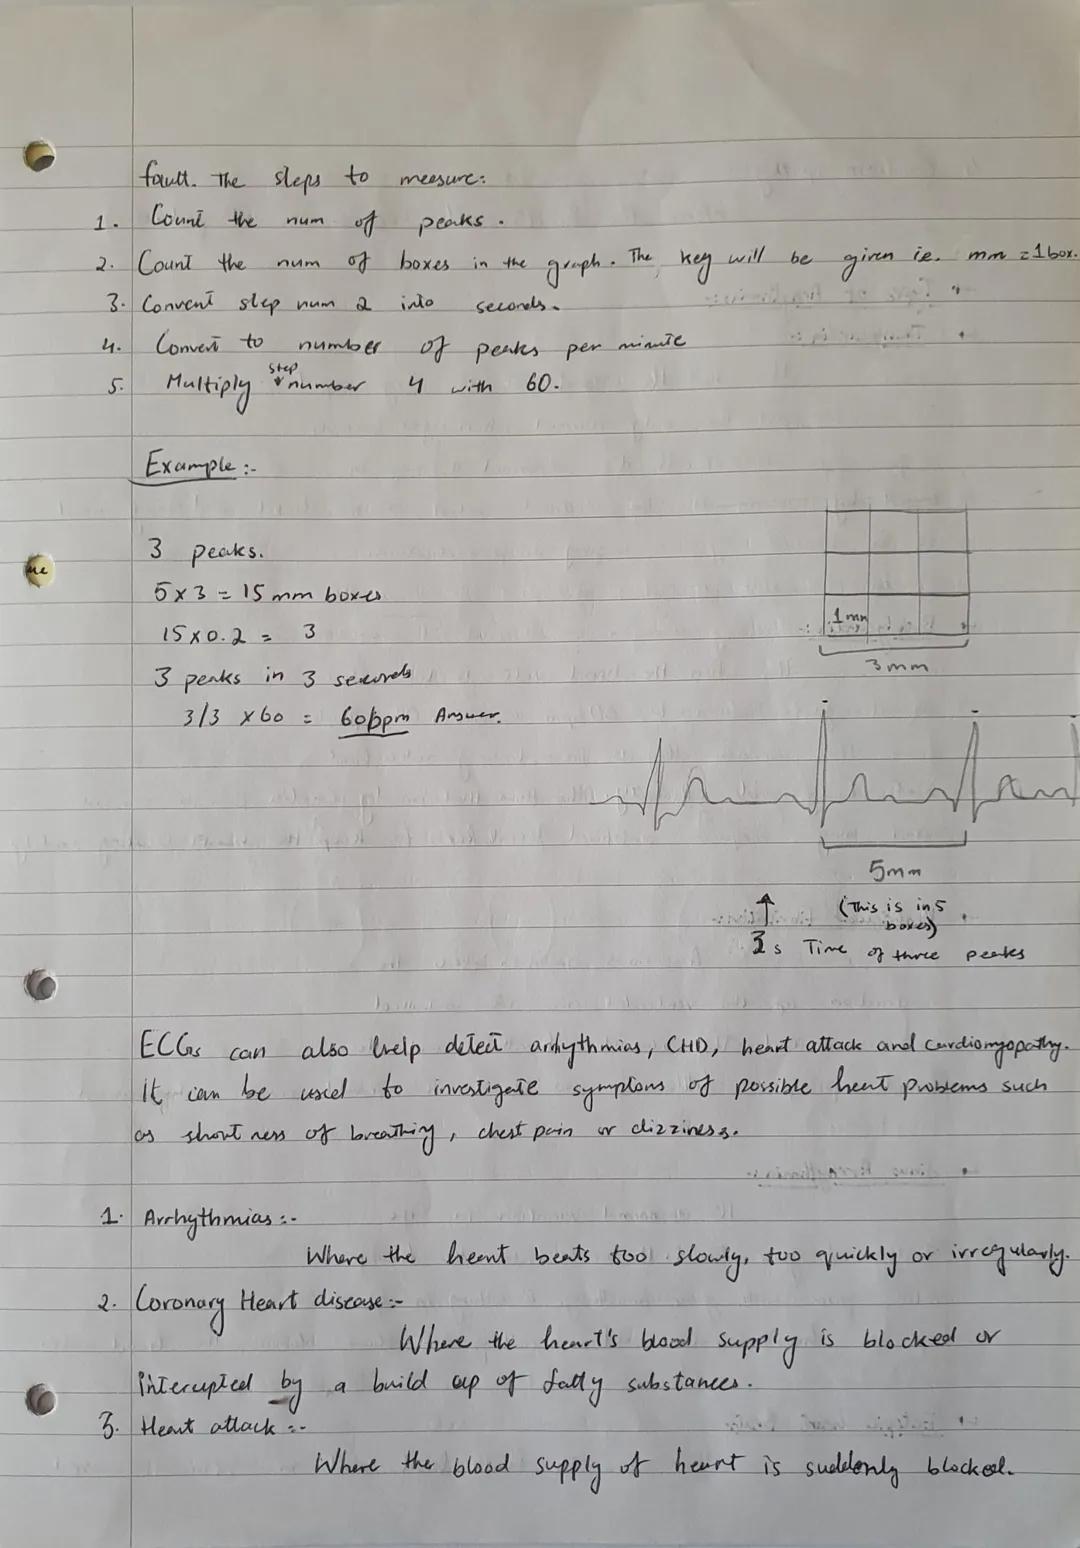 fault. The steps to meesure:
1. Count the num of peaks.
2. Count the num of boxes in the graph. The key will be given ie. mm = 1 box.
3. Convent step num 2 into seconds.
4. Convert to number of peaks per minute
5. Multiply step number 4 with 60.
Example :-
3 peaks.
5 x 3 = 15 mm boxes
15 x 0.2 = 3
3 peaks in 3 seconds
3/3 x 60 = 60bpm Answer.
1 mm
3 mm
5mm
(This is in 5 boxes)
3s Time of three peaks
me
ECGs can also help detect arrhythmias, CHD, heart attack and cardiomyopathy.
It can be used to investigate symptoms of possible heart problems such
as shortness of breathing, chest pain or dizziness.
1. Arrhythmias :-
Where the heart beats too slowly, too quickly or irregularly.
2. Coronary Heart disease :-
Where the heart's blood supply is blocked or
interupted by a build up of fatty substances.
3. Heart attack :-
Where the blood supply of heart is suddenly blocked.